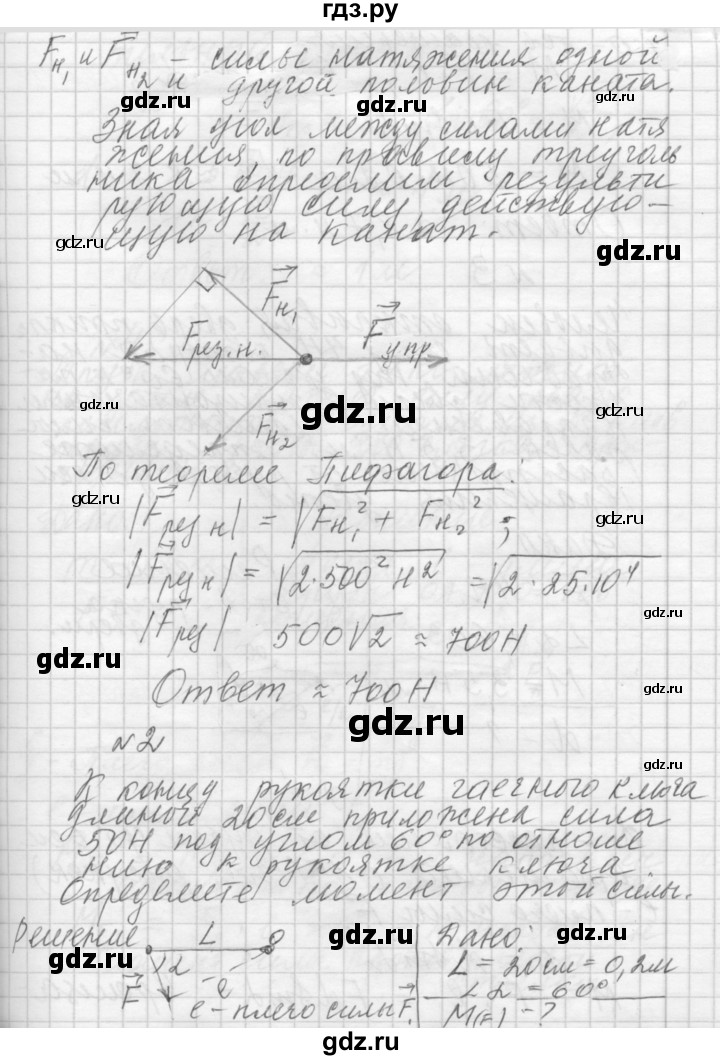 гдз.ру
Fн₁ и F⃗н₂ – силы натяжения одной
gdz.ru
и другой половин каната.
gdz.ru
gdz.ru
Зная угол между силами натя
жения, по правилу треуголь
ника определим результи
рующую силу, действую–
щую на канат.
gdz.ru
gdz.ru
gdz.ru
F⃗н₁
Fрез.н.
F⃗упр
gdz.ru
gdz.ru
gdz.ru
gdz.ru
F⃗н₂
По теореме Пифагора:
gdz.ru
|F⃗рез н| = √(Fн₁² + Fн₂²);
gdz.ru
|F⃗рез н| = √(2·500² Н²) = √(2·25·10⁴
|F⃗рез| 500√2 ≈ 700Н
gdz.ru
gdz.ru
Ответ ≈ 700Н
gdz.ru
gdz.ru
№2
gdz.ru
К концу рукоятки гаечного ключа
длиной 20см приложена сила
50Н под углом 60° по отноше
нию к рукоятке ключа.
Определите момент этой силы.
gdz.ru
gdz.ru
gdz.ru
Решение L О Дано:
α L = 20см = 0,2м
F⃗ ℓ – плечо силы F⃗. ∠α = 60°
M(F) – ?
gdz.ru
gdz.ru
gdz.ru